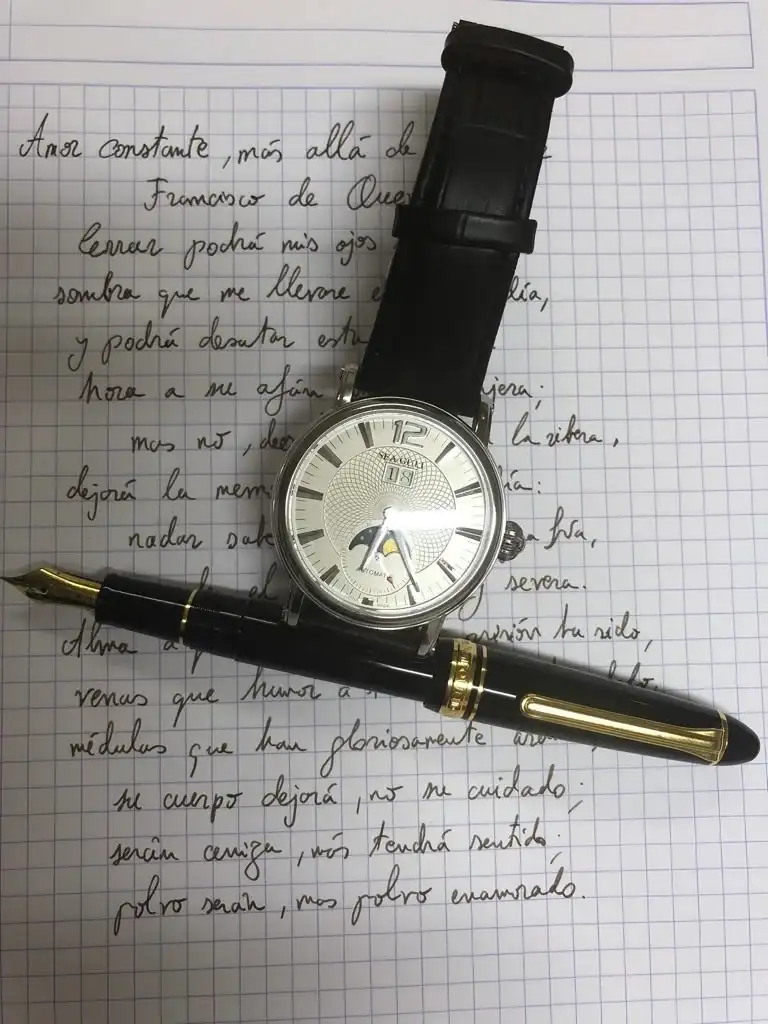 Amor constante, más allá de
Francisco de Que
Cerrar podrá mis ojos
sombra que me llevare día,
y podrá desatar esta
hora a su afán jera;
mas no, de la ribera,
dejará la mem ía:
nadar sabe a fría,
y severa.
Alma a prisión ha sido,
venas que humor a
médulas que han gloriosamente
su cuerpo dejará, no su cuidado;
serán ceniza, más tendrá sentido;
polvo serán, mas polvo enamorado.
12
SEA-GULL
18
AUTOMATIC